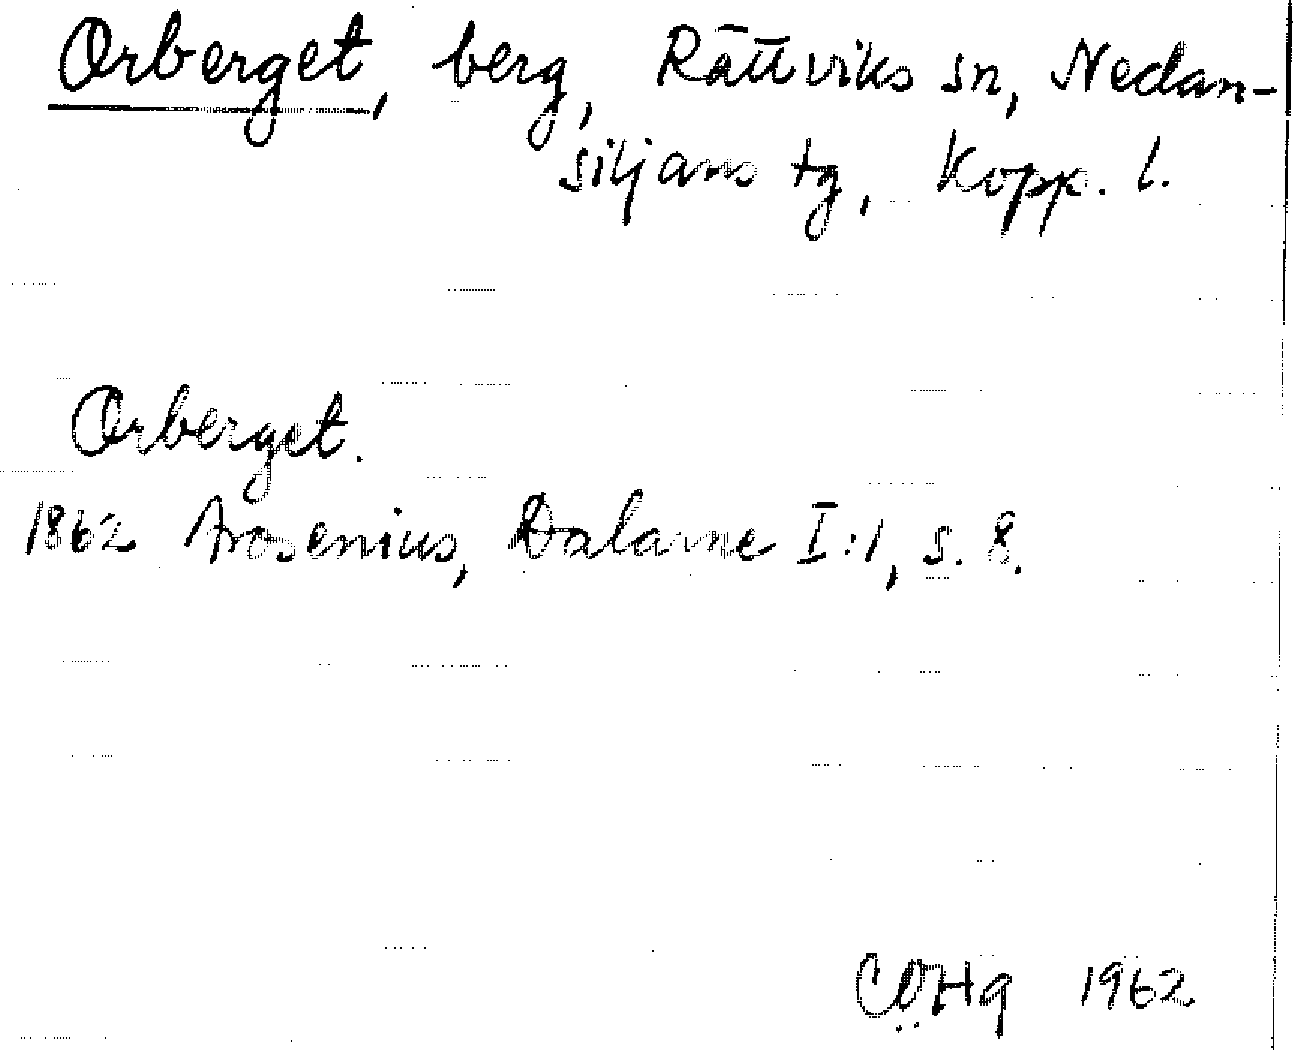 Orberget, berg, Rättviks sn, Nedan-
siljans tg, Kopp. l.
Orberget.
1862 Arosenius, Dalarne I:1, s. 8.
CÖHg 1962